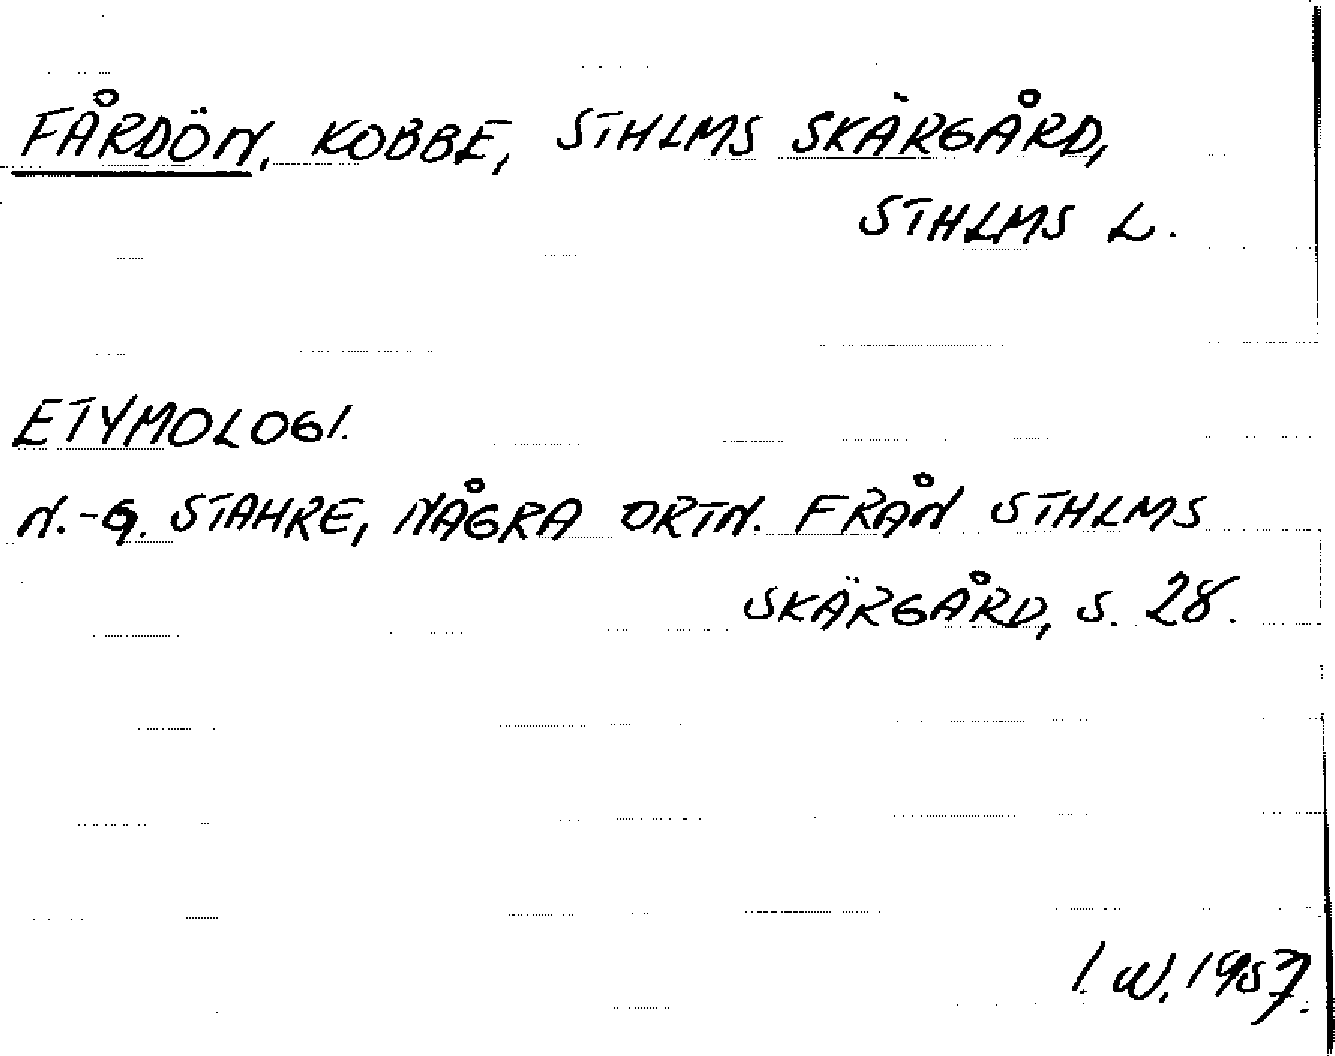 FÅRDÖN, KOBBE, STHLMS SKÄRGÅRD,
STHLMS L.
ETYMOLOGI.
N.-G. STAHRE, NÅGRA ORTN. FRÅN STHLMS
SKÄRGÅRD, S. 28.
I. W. 1957.